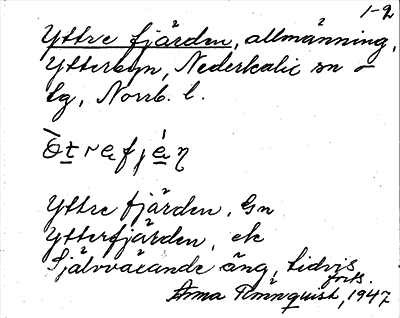 1-2
Yttre fjärden, allmänning,
Ytterbyn, Nederkalix sn o
lg, Norrb. l.
Yttre fjärden, Gn
Ytterfjärden, ek
Självväxande äng, tidvis
forts.
Anna Rönnquist, 1947